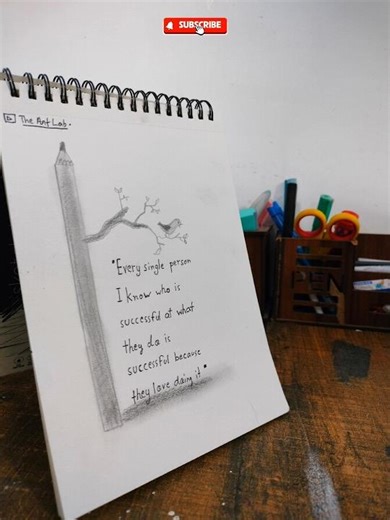 SUBSCRIBE
The Art Lab.
"Every single person
I know who is
successful at what
they do is
successful because
they love doing it"
PEN